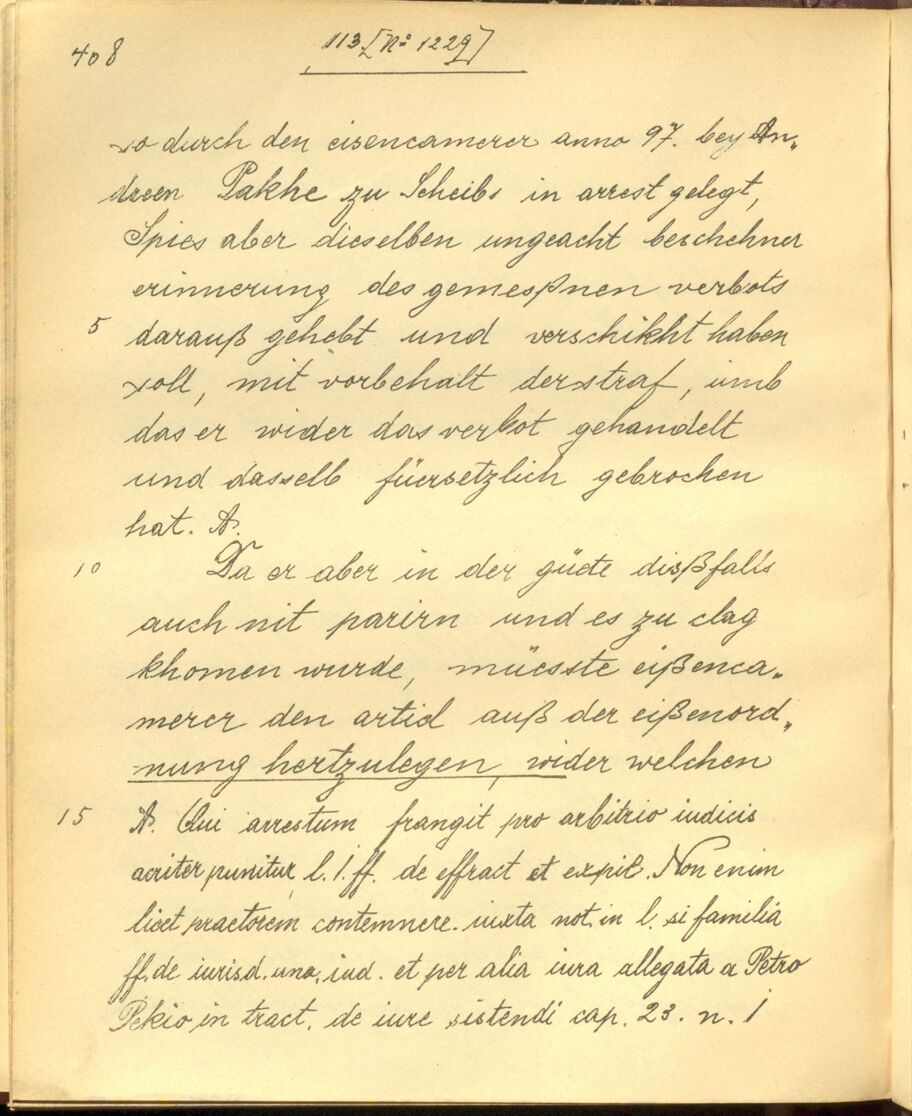 408
113 [No 1229]
so durch den eisencamerer anno 97. bey An„
dreen Pakhe zu Scheibs in arrest gelegt,
Spies aber dieselben ungeacht beschehner
erinnerung des gemeßnen verbots
5 darauß gehebt und verschikht haben
soll, mit vorbehalt der straf, umb
das er wider das verbot gehandelt
und dasselb füersetzlich gebrochen
hat. A.
10 Da er aber in der güete dißfalls
auch nit parirn und es zu clag
khomen wurde, müesste eißenca„
merer den articl auß der eißenord„
nung hertzulegen, wider welchen
15 A. Qui arrestum frangit pro arbitrio iudicis
acriter punitur, l. 1. ff. de effract et expil. Non enim
licet praetorem contemnere. iuxta not. in l. si familia
ff. de iurisd. una, iud. et per alia iura allegata a Petro
Pekio in tract. de iure sistendi cap. 23. n. 1